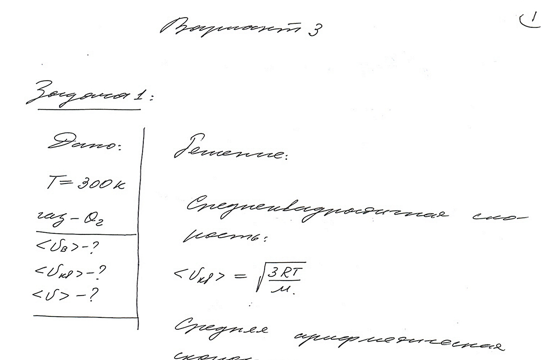 1
Вариант 3
Задача 1:
Дано:
T = 300 К
газ – O₂
<υв> – ?
<υкв> – ?
<υ> – ?
Решение:
Среднеквадратичная ско-
рость:
<υкв> = √(3RT/М.)
Средняя арифметическая
скорос